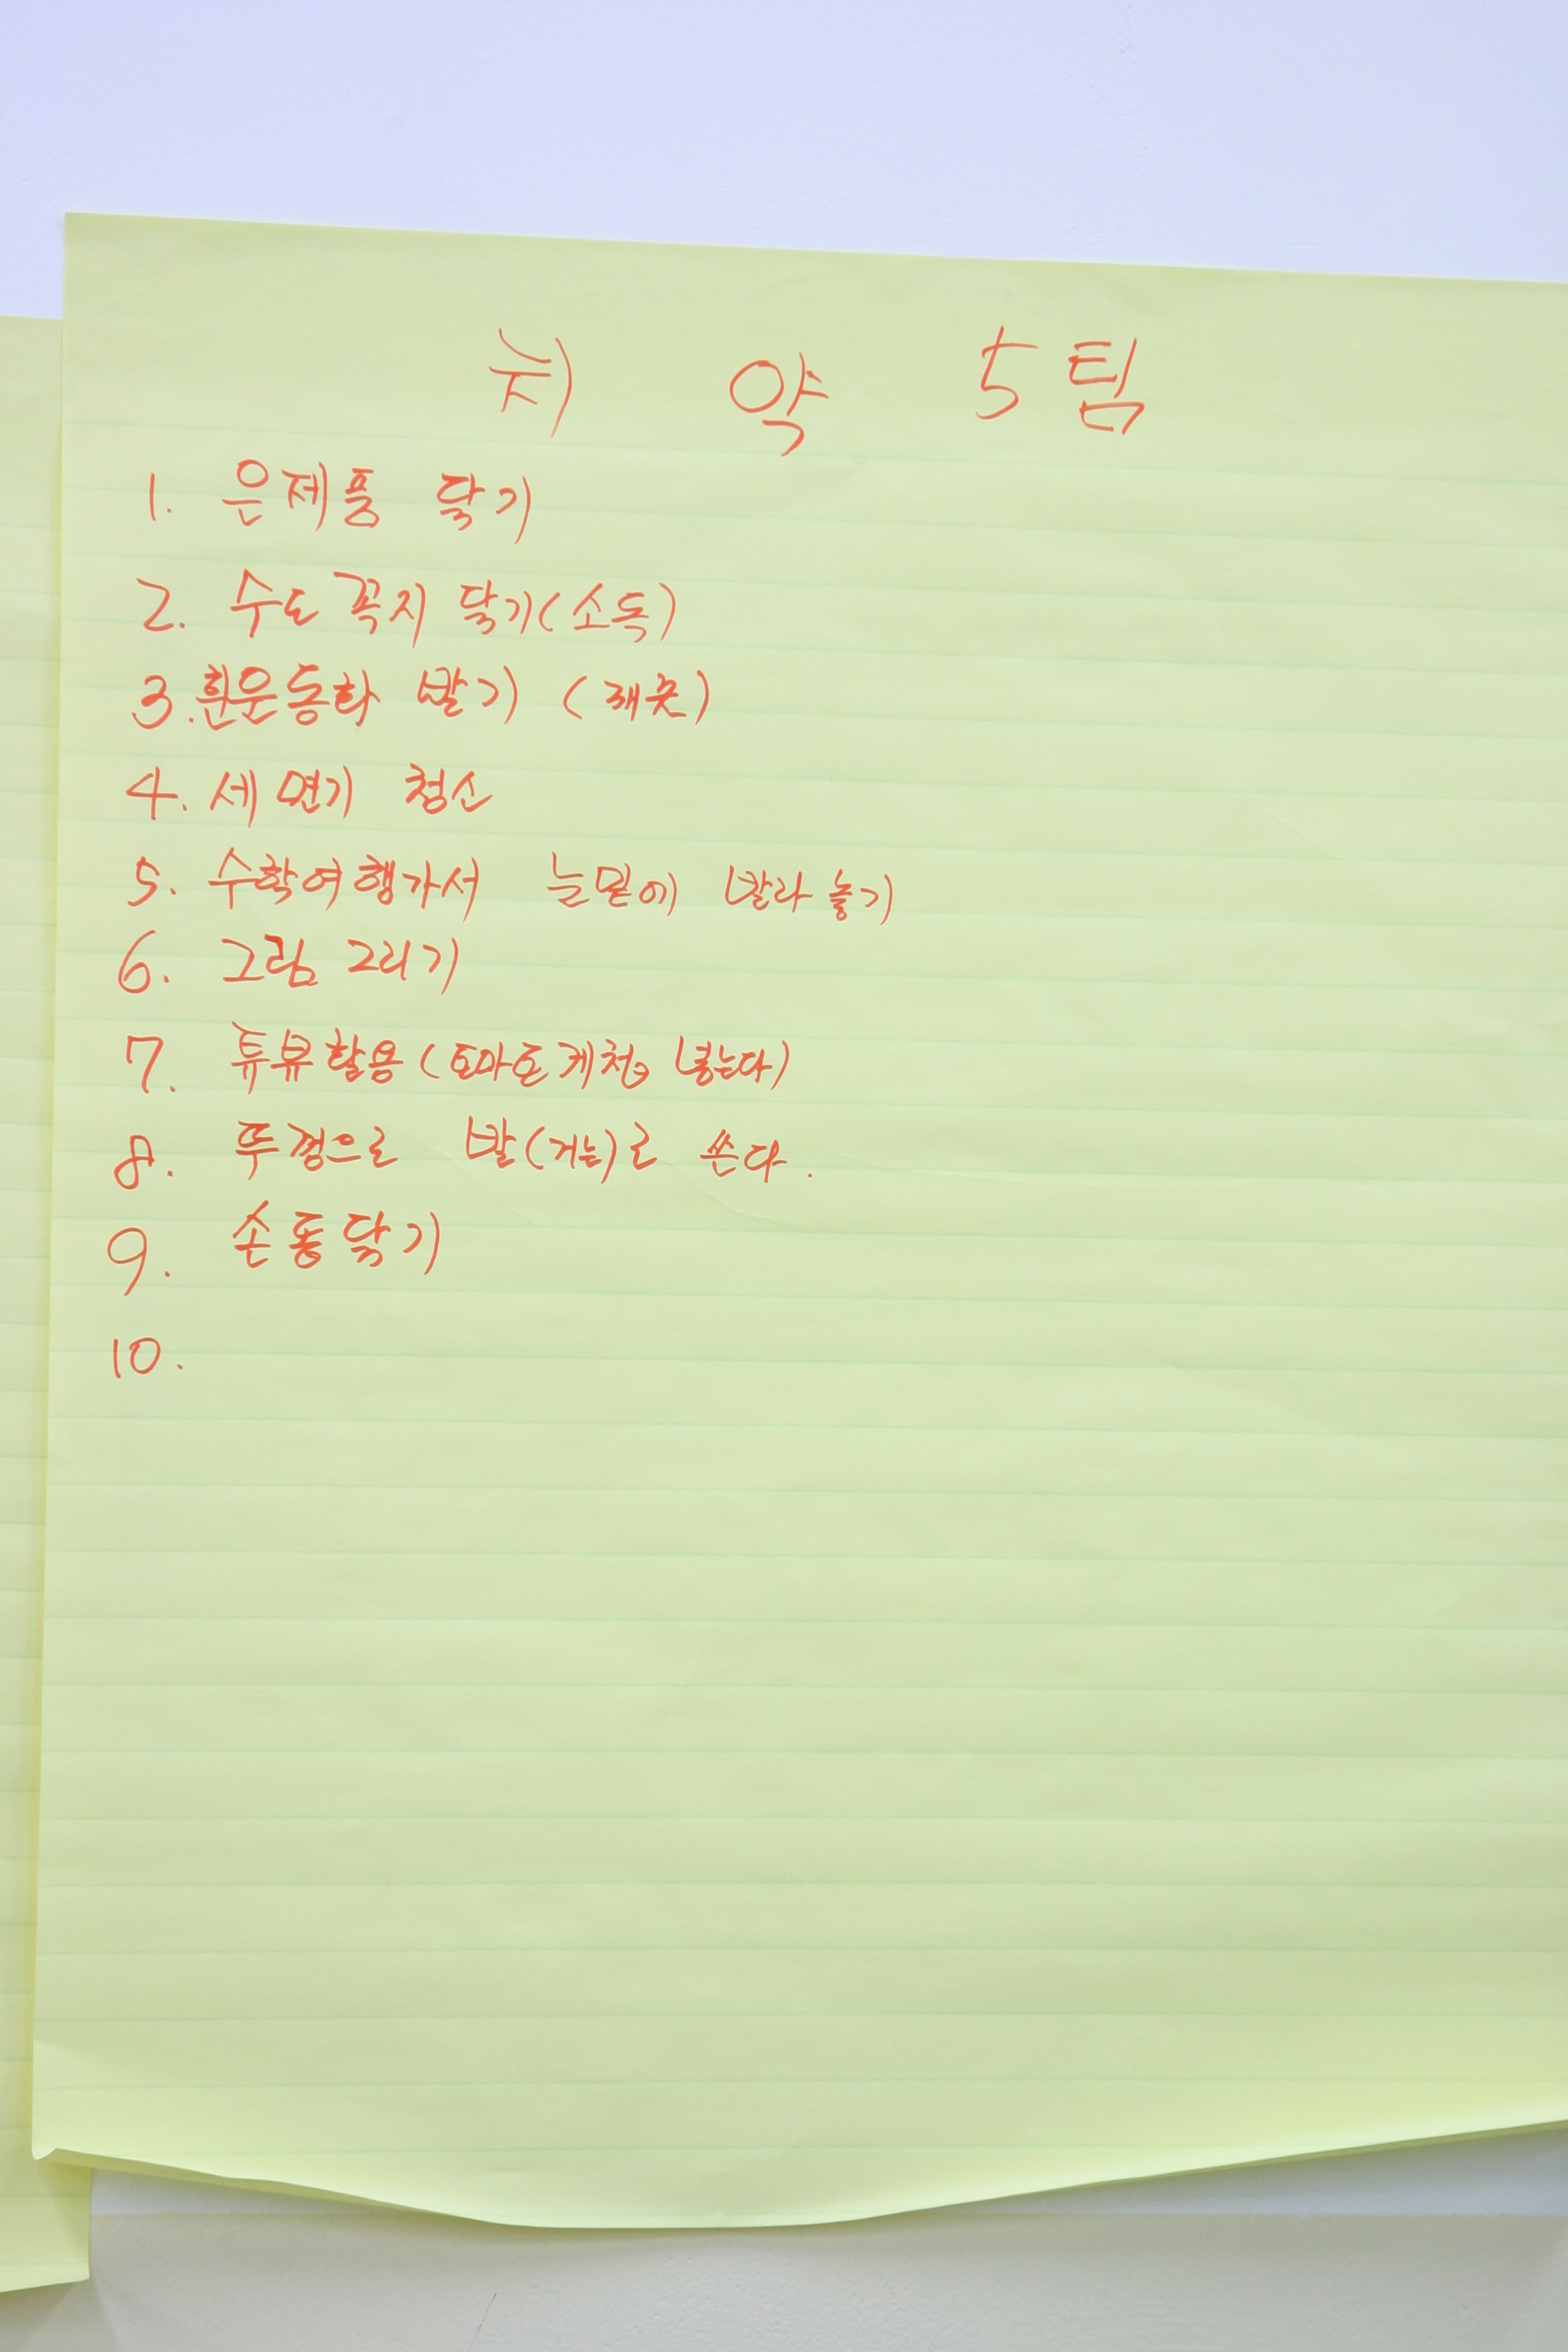 치 약 5팀
1. 은제품 닦기
2. 수도꼭지 닦기(소독)
3. 흰운동화 빨기 (깨끗)
4. 세면기 청소
5. 수학여행가서 눈밑에 발라놓기
6. 그림 그리기
7. 튜브활용(토마토케첩 넣는다)
8. 뚜껑으로 발(거는)로 쓴다.
9. 손톱닦기
10.